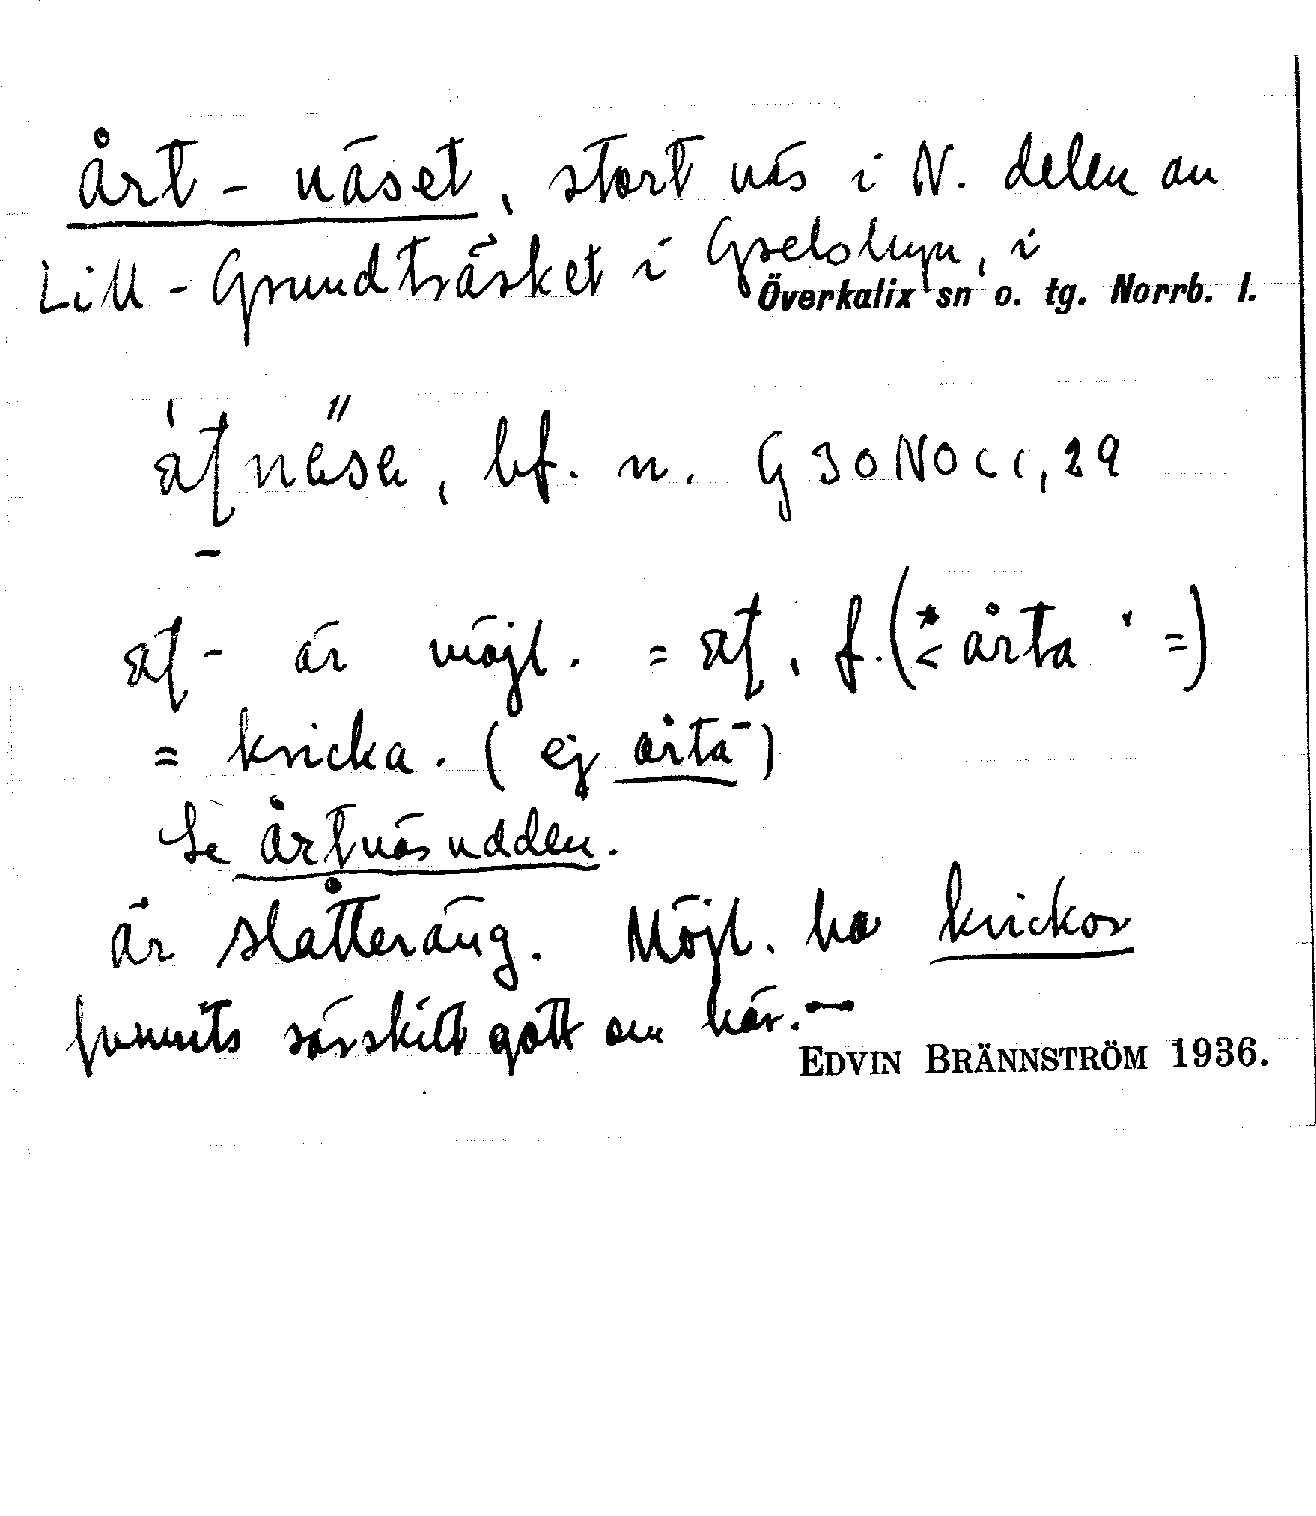 årt-näset, stort näs i N. delen av
Lill-Grundträsket i Grelsbyn, i
Överkalix sn o. tg. Norrb. l.
bf. n. G 30 NO cc, 29
är möjl. = f. (*< årta =)
= kricka. (ej årta-)
Se årtnäsudden.
är slåtteräng. Möjl. ha krickor
funnits särskilt gott om här. —
EDVIN BRÄNNSTRÖM 1936.